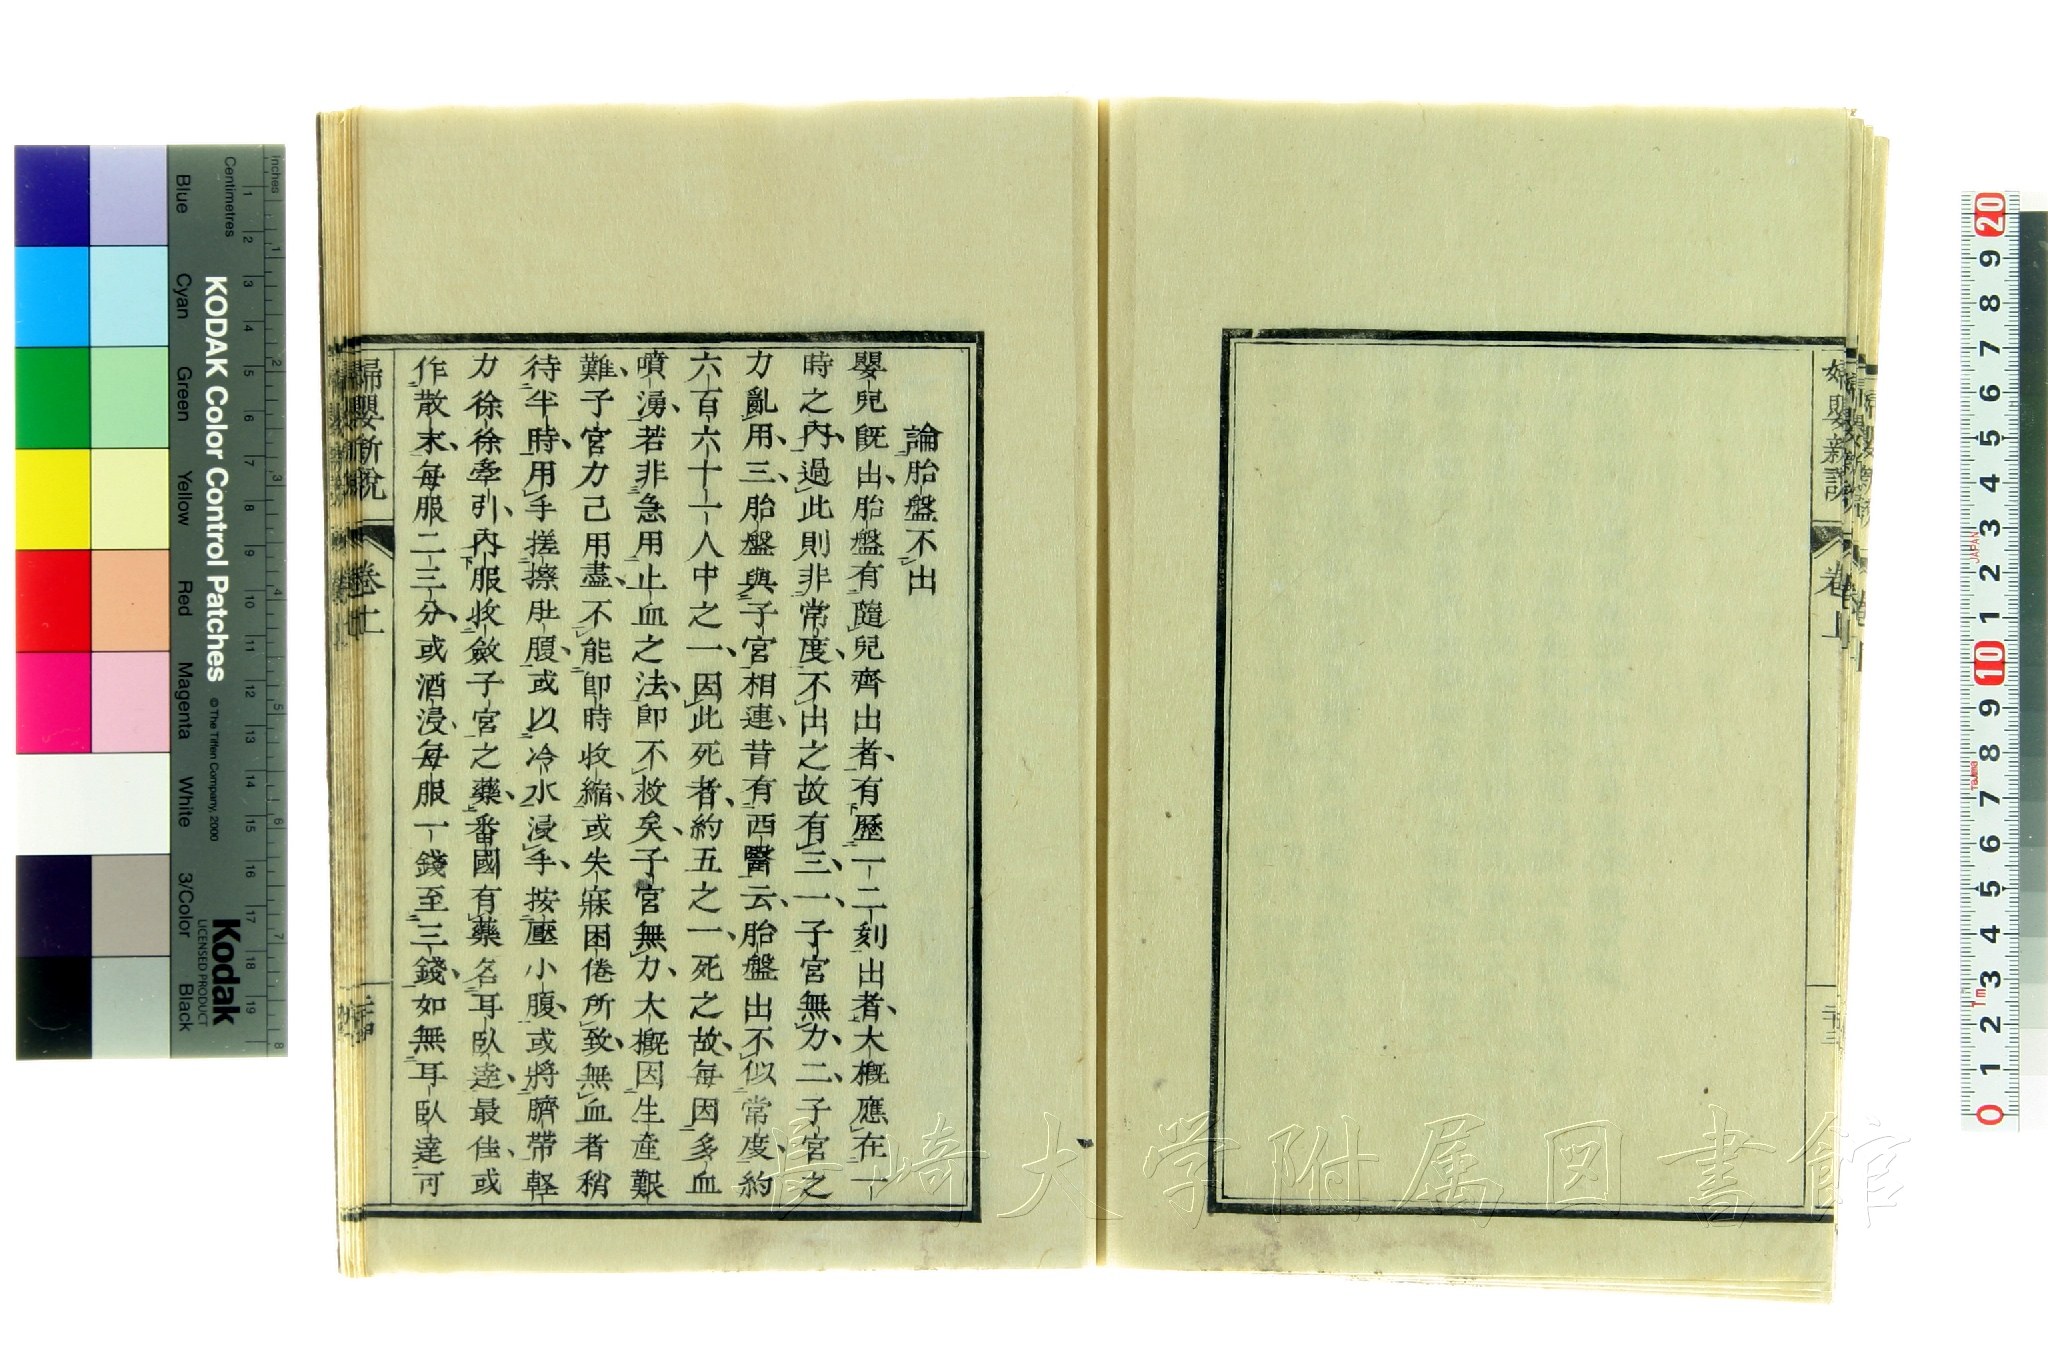 婦嬰新說
卷上
二十三
論胎盤不出
嬰兒既出、胎盤有隨兒齊出者、有歷一二刻出者、大概應在一
時之內、過此則非常度、不出之故有三、一、子宮無力、二、子宮之
力亂用、三、胎盤與子宮相連、昔有西醫云、胎盤出不似常度、約
六百六十一人中之一、因此死者、約五之一、死之故、每因多血
噴湧、若非急用止血之法、即不救矣、子宮無力、大概因生產艱
難、子宮力己用盡、不能即時收縮、或失寐困倦所致、無血者稍
待半時、用手搓擦肚腹、或以冷水浸手、按壓小腹、或將臍帶輕
力徐徐牽引、內服收斂子宮之藥、番國有藥名耳臥達、最佳、或
作散末、每服二三分、或酒浸、每服一錢至三錢、如無耳臥達可
婦嬰新說
卷上
二十四
KODAK Color Control Patches
© The Tiffen Company, 2000
Kodak
LICENSED PRODUCT
Blue Cyan Green Yellow Red Magenta White 3/Color Black
Inches
Centimetres
1 2 3 4 5 6 7 8 9 10 11 12 13 14 15 16 17 18 19
1 2 3 4 5 6 7 8
20 9 8 7 6 5 4 3 2 1 10 9 8 7 6 5 4 3 2 1 0
JAPAN
Tajima
1m
長崎大学附属図書館